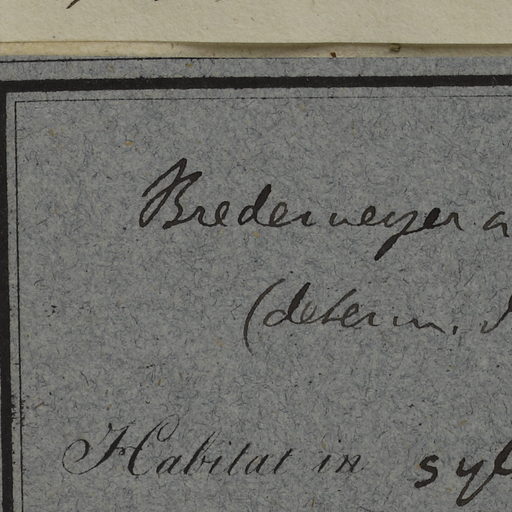 Bredemeyera
(determ.
Habitat in syl